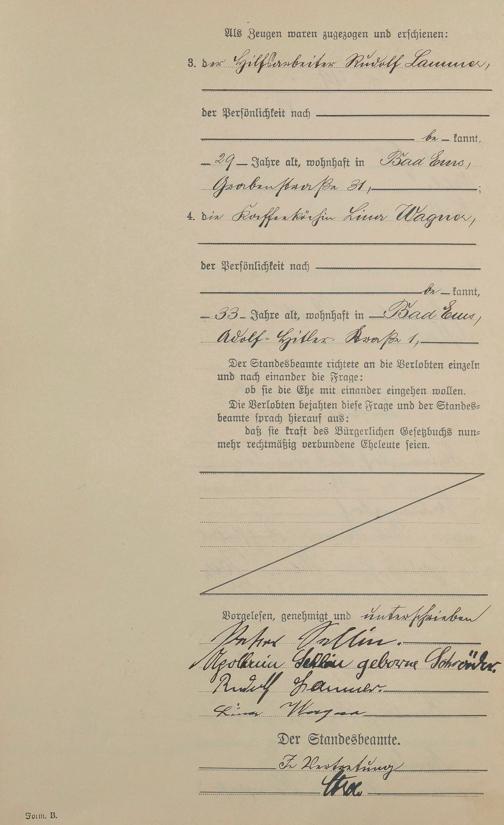 Als Zeugen waren zugezogen und erschienen:
3. der Hilfsarbeiter Rudolf Lammer,
der Persönlichkeit nach
be kannt,
29 Jahre alt, wohnhaft in Bad Ems,
Grabenstraße 31,;
4. die Kaffeeköchin Lina Wagner,
der Persönlichkeit nach
be kannt,
33 Jahre alt, wohnhaft in Bad Ems,
Adolf-Hitler-Straße 1,
Der Standesbeamte richtete an die Verlobten einzeln
und nach einander die Frage:
ob sie die Ehe mit einander eingehen wollen.
Die Verlobten bejahten diese Frage und der Standes-
beamte sprach hierauf aus:
daß sie kraft des Bürgerlichen Gesetzbuchs nun-
mehr rechtmäßig verbundene Eheleute seien.
Vorgelesen, genehmigt und unterschrieben
Sellin.
Sellin geborene Schröder.
Rudolf Lammer.
Lina Wagner
Der Standesbeamte.
In Vertretung
Form. B.